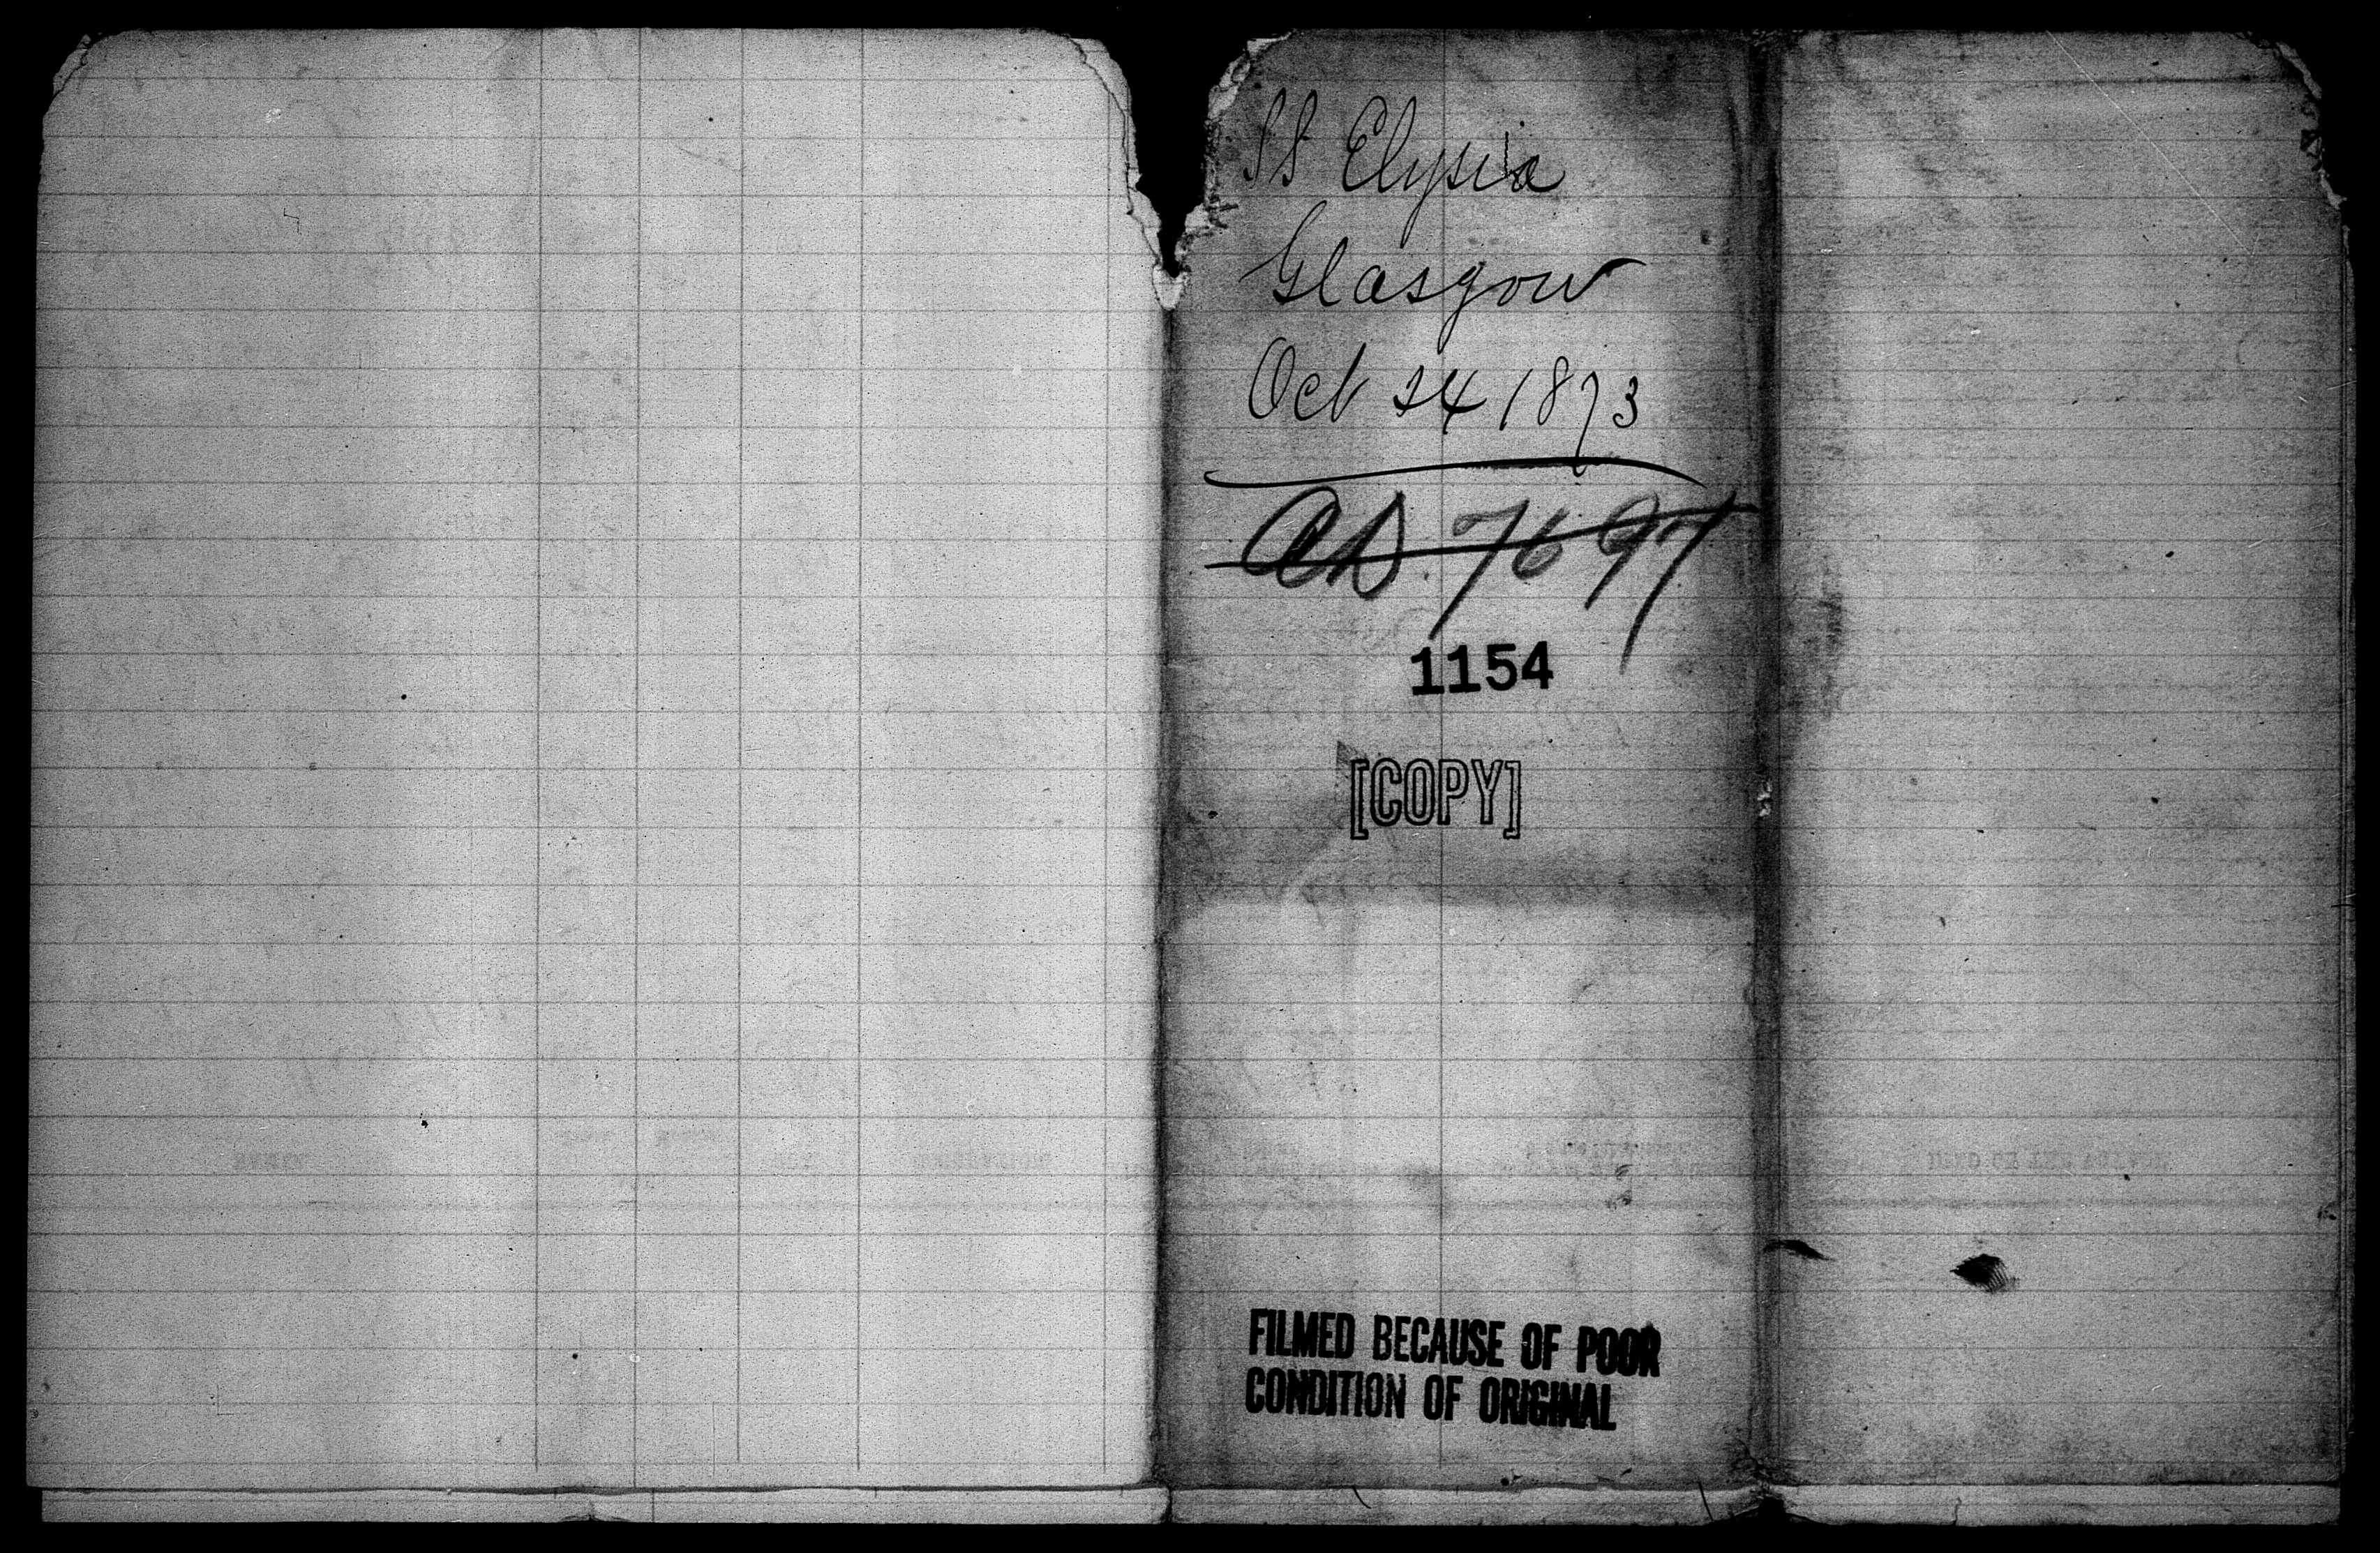 SS Elysia
Glasgow
Oct 24 1873
7697
1154
[COPY]
FILMED BECAUSE OF POOR
CONDITION OF ORIGINAL